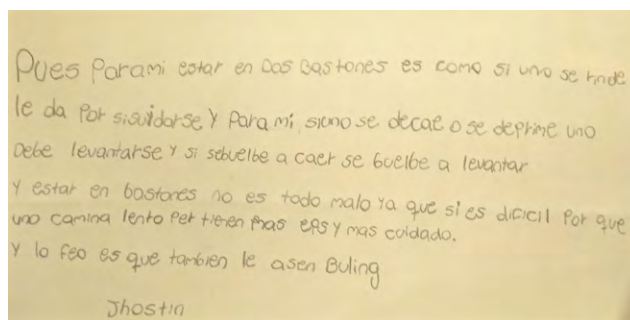 Pues Para mi estar en Dos Bastones es como si uno se rinde
le da Por sisuidarse Y Para mi, siuno se decae o se deprime uno
Debe levantarse Y si sebuelbe a caer se buelbe a levantar
Y estar en bastones no es todo malo Ya que si es dicicil Por que
uno camina lento Per tienen mas y mas cuidado.
Y lo feo es que tambien le asen Buling
Jhostin